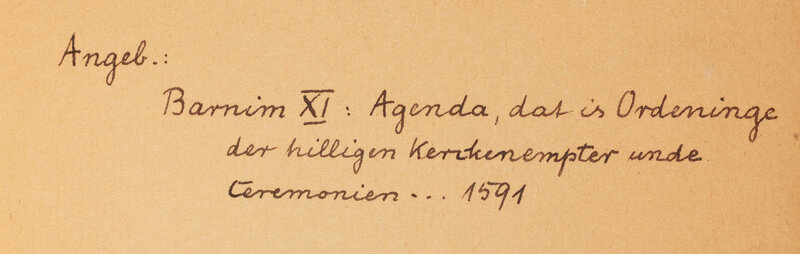 Angeb.:
Barnim XI: Agenda, dat is Ordeninge
der hilligen Kerckenempter unde
Ceremonien ... 1591